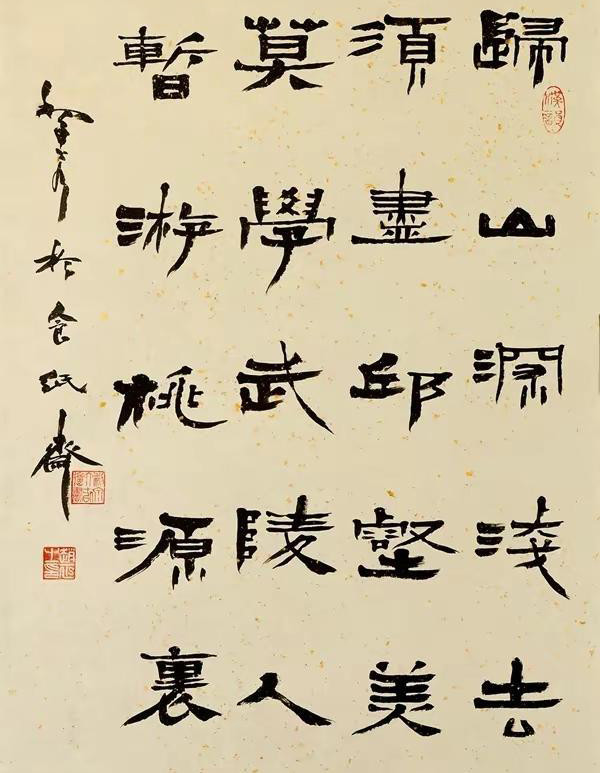 歸山深淺去
須盡邱壑美
莫學武陵人
暫游桃源裏
於食紙齋